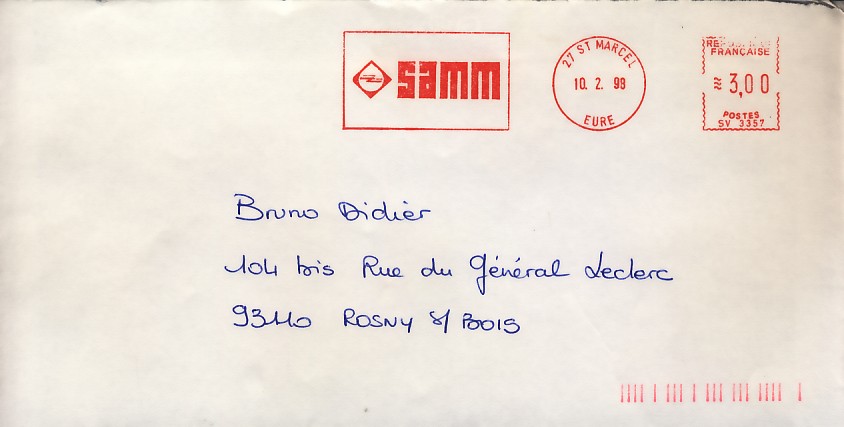 samm
27 ST MARCEL
10. 2. 98
EURE
REPUBLIQUE
FRANÇAISE
≈ 3,00
POSTES
SV 3357
Bruno Didier
104 bis Rue du Général Leclerc
93110 ROSNY s/ BOIS